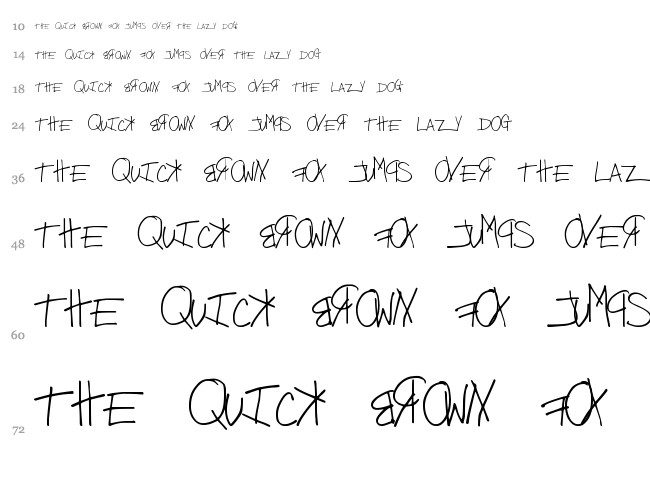 10 THE QUICK BROWN FOX JUMPS OVER THE LAZY DOG
14 THE QUICK BROWN FOX JUMPS OVER THE LAZY DOG
18 THE QUICK BROWN FOX JUMPS OVER THE LAZY DOG
24 THE QUICK BROWN FOX JUMPS OVER THE LAZY DOG
36 THE QUICK BROWN FOX JUMPS OVER THE LAZ
48 THE QUICK BROWN FOX JUMPS OVER
60 THE QUICK BROWN FOX JUMPS
72 THE QUICK BROWN FOX